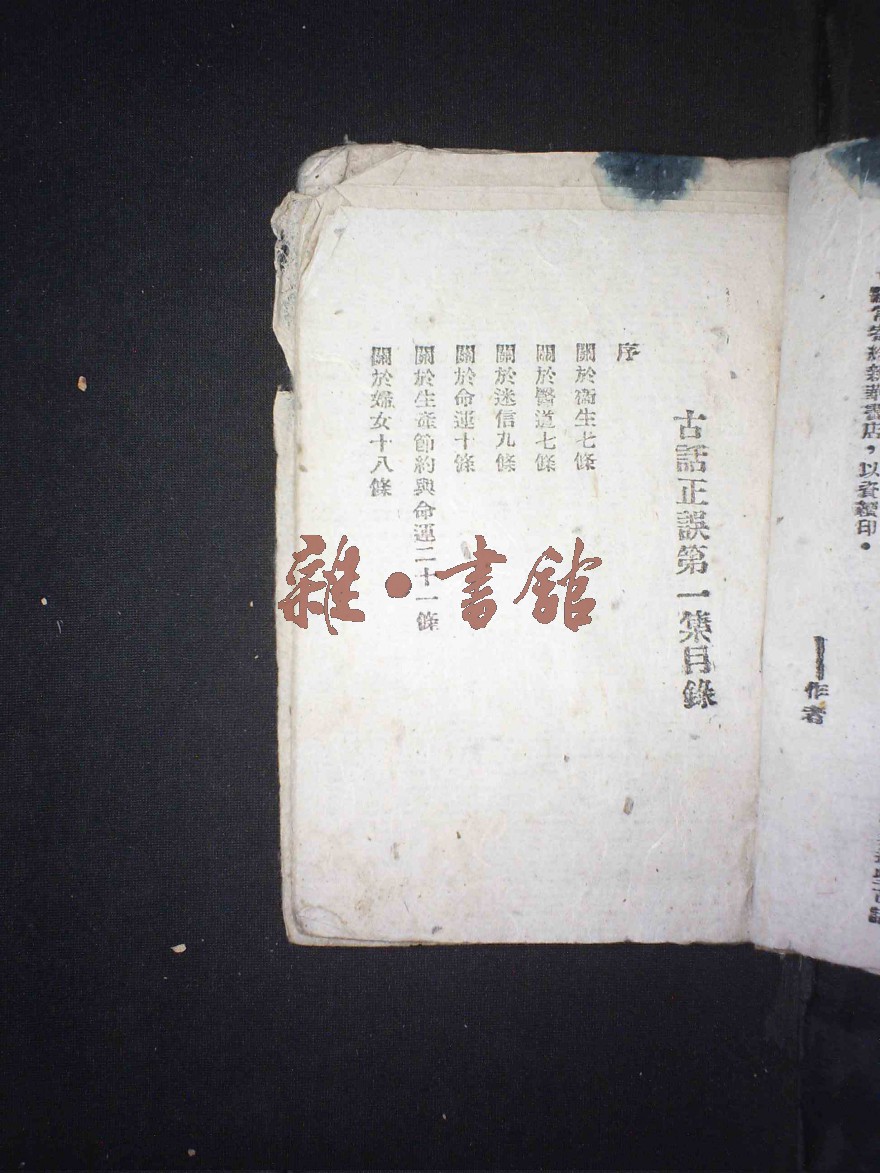 寄者給新華書店，以資續印。
——作者
古話正誤第一集目錄
序
關於衛生七條
關於醫道七條
關於迷信九條
關於命運十條
關於生產節約與命運二十一條
關於婦女十八條
雜·書館